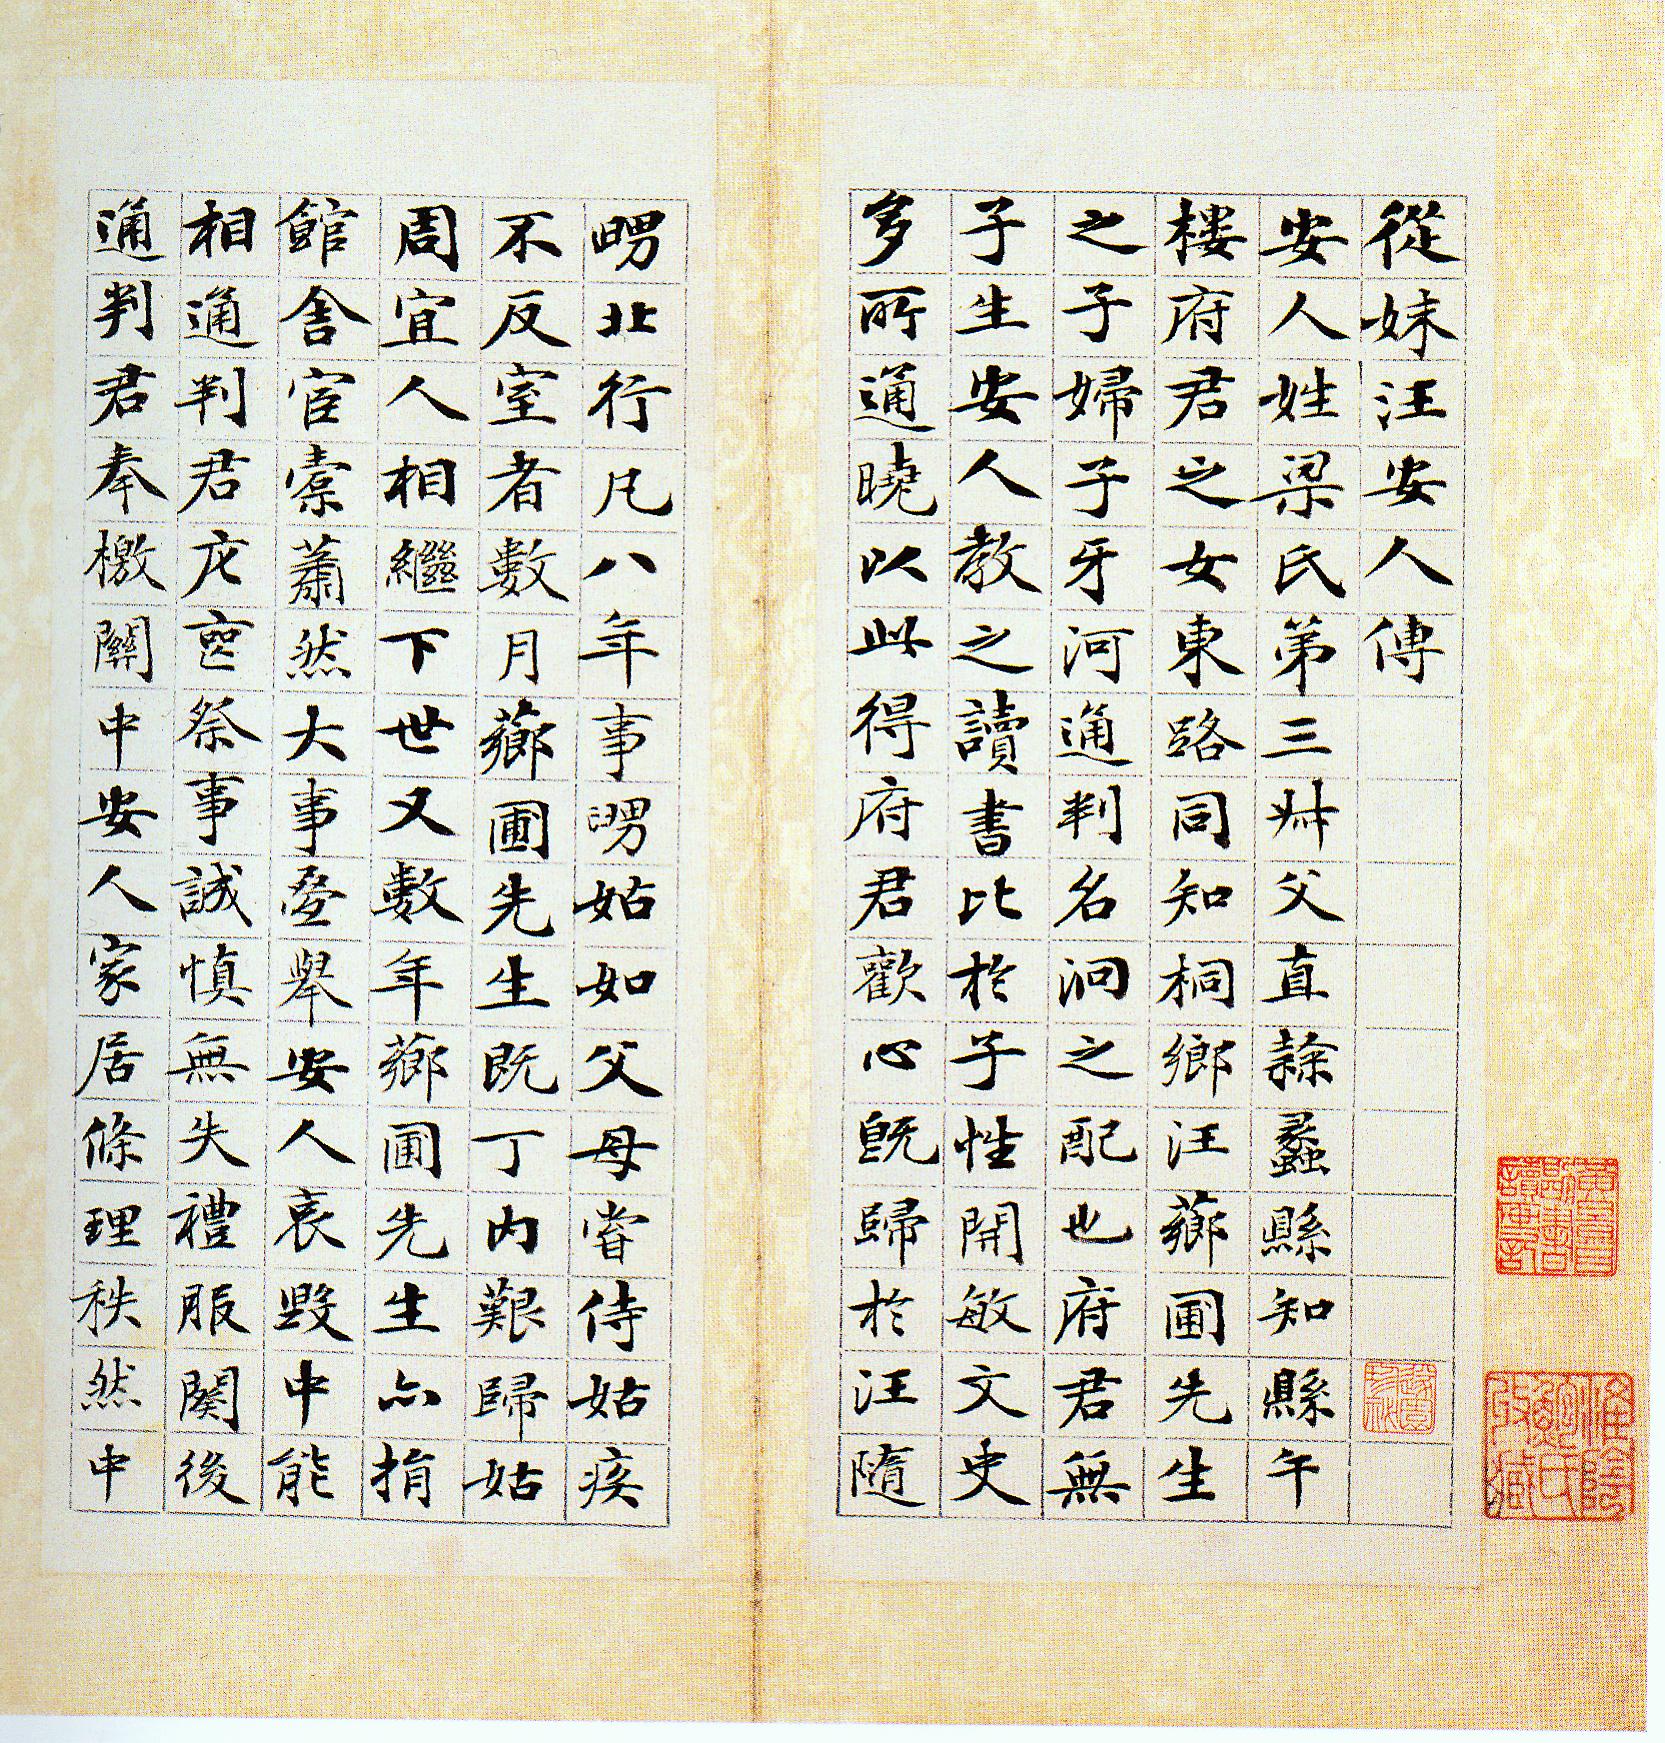 從妹汪安人傳
安人姓梁氏弟三艸父直隸蠡縣知縣午
樓府君之女東路同知桐鄉汪薌圃先生
之子婦子子牙河通判名泂之配也府君無
子生安人教之讀書比於子性開敏文史
多所通曉以此得府君歡心旣歸於汪隨
甥北行凡八年事甥姑如父母嘗侍姑疾
不反室者數月薌圃先生既丁內艱歸姑
周宜人相繼下世又數年薌圃先生亦捐
館舍宦橐蕭然大事疊舉安人哀毀中能
相通判君庀喪祭事誠慎無失禮服闋後
通判君奉檄關中安人家居條理秩然中